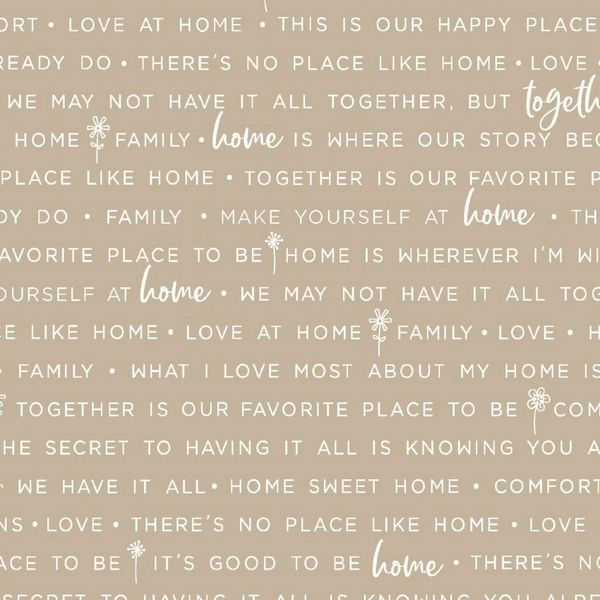 ORT • LOVE AT HOME • THIS IS OUR HAPPY PLACE
READY DO • THERE'S NO PLACE LIKE HOME • LOVE •
WE MAY NOT HAVE IT ALL TOGETHER, BUT togeth
HOME FAMILY • home IS WHERE OUR STORY BEG
PLACE LIKE HOME • TOGETHER IS OUR FAVORITE P
DY DO • FAMILY • MAKE YOURSELF AT home • TH
AVORITE PLACE TO BE HOME IS WHEREVER I'M WI
OURSELF AT home • WE MAY NOT HAVE IT ALL TOG
CE LIKE HOME • LOVE AT HOME FAMILY • LOVE • H
• FAMILY • WHAT I LOVE MOST ABOUT MY HOME IS
TOGETHER IS OUR FAVORITE PLACE TO BE COM
HE SECRET TO HAVING IT ALL IS KNOWING YOU A
WE HAVE IT ALL • HOME SWEET HOME • COMFORT
NS • LOVE • THERE'S NO PLACE LIKE HOME • LOVE
ACE TO BE IT'S GOOD TO BE home • THERE'S NO
SECRET TO HAVING IT ALL IS KNOWING YOU ALRE